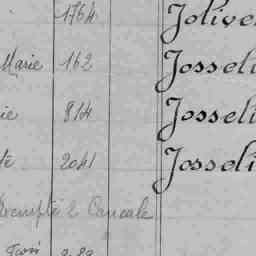 1764 Jolive
Marie 162 Josseli
ie 814 Josseli
te 2041 Josseli
2 Cancale